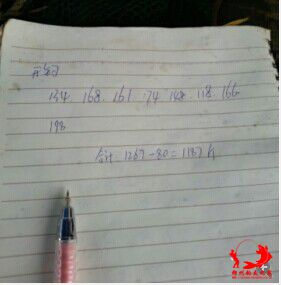 134 168 161 174 148 118 166
198
合计: 1267-80=1187斤